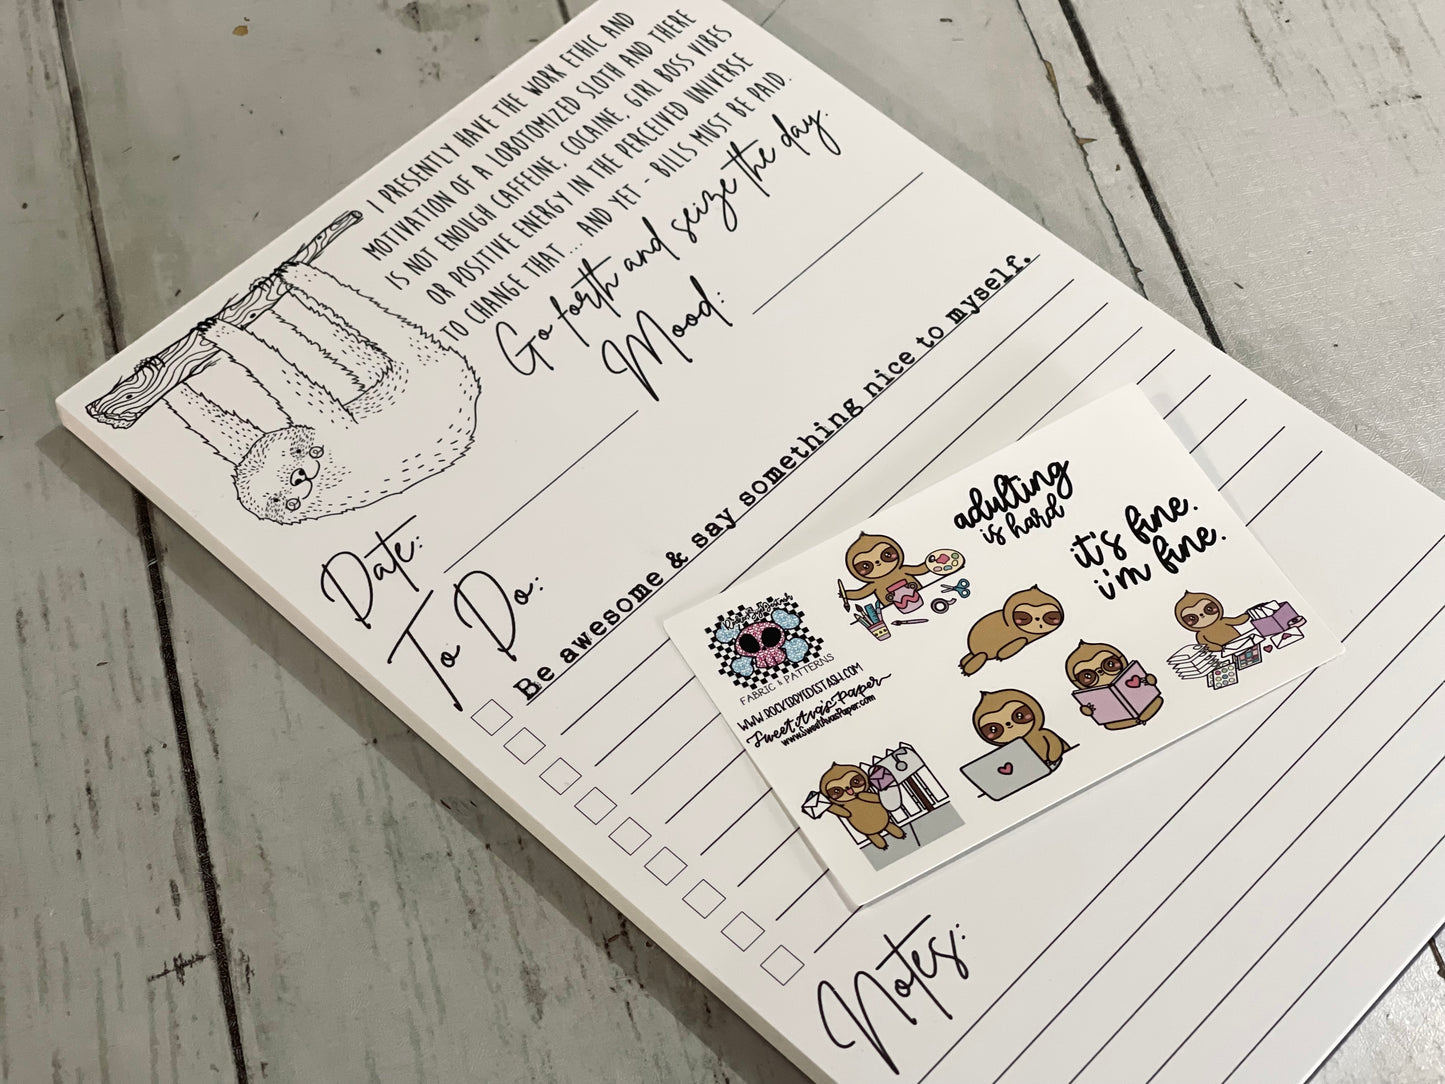 I PRESENTLY HAVE THE WORK ETHIC AND
MOTIVATION OF A LOBOTOMIZED SLOTH AND THERE
IS NOT ENOUGH CAFFEINE, COCAINE, GIRL BOSS VIBES
OR POSITIVE ENERGY IN THE PERCEIVED UNIVERSE
TO CHANGE THAT ... AND YET - BILLS MUST BE PAID.
Go forth and seize the day.
Mood:
Date:
To Do:
Be awesome & say something nice to myself.
adulting
is hard
it's fine.
i'm fine.
FABRIC & PATTERNS
Sweet Ava's Paper
www.SweetAvasPaper.com
Notes: